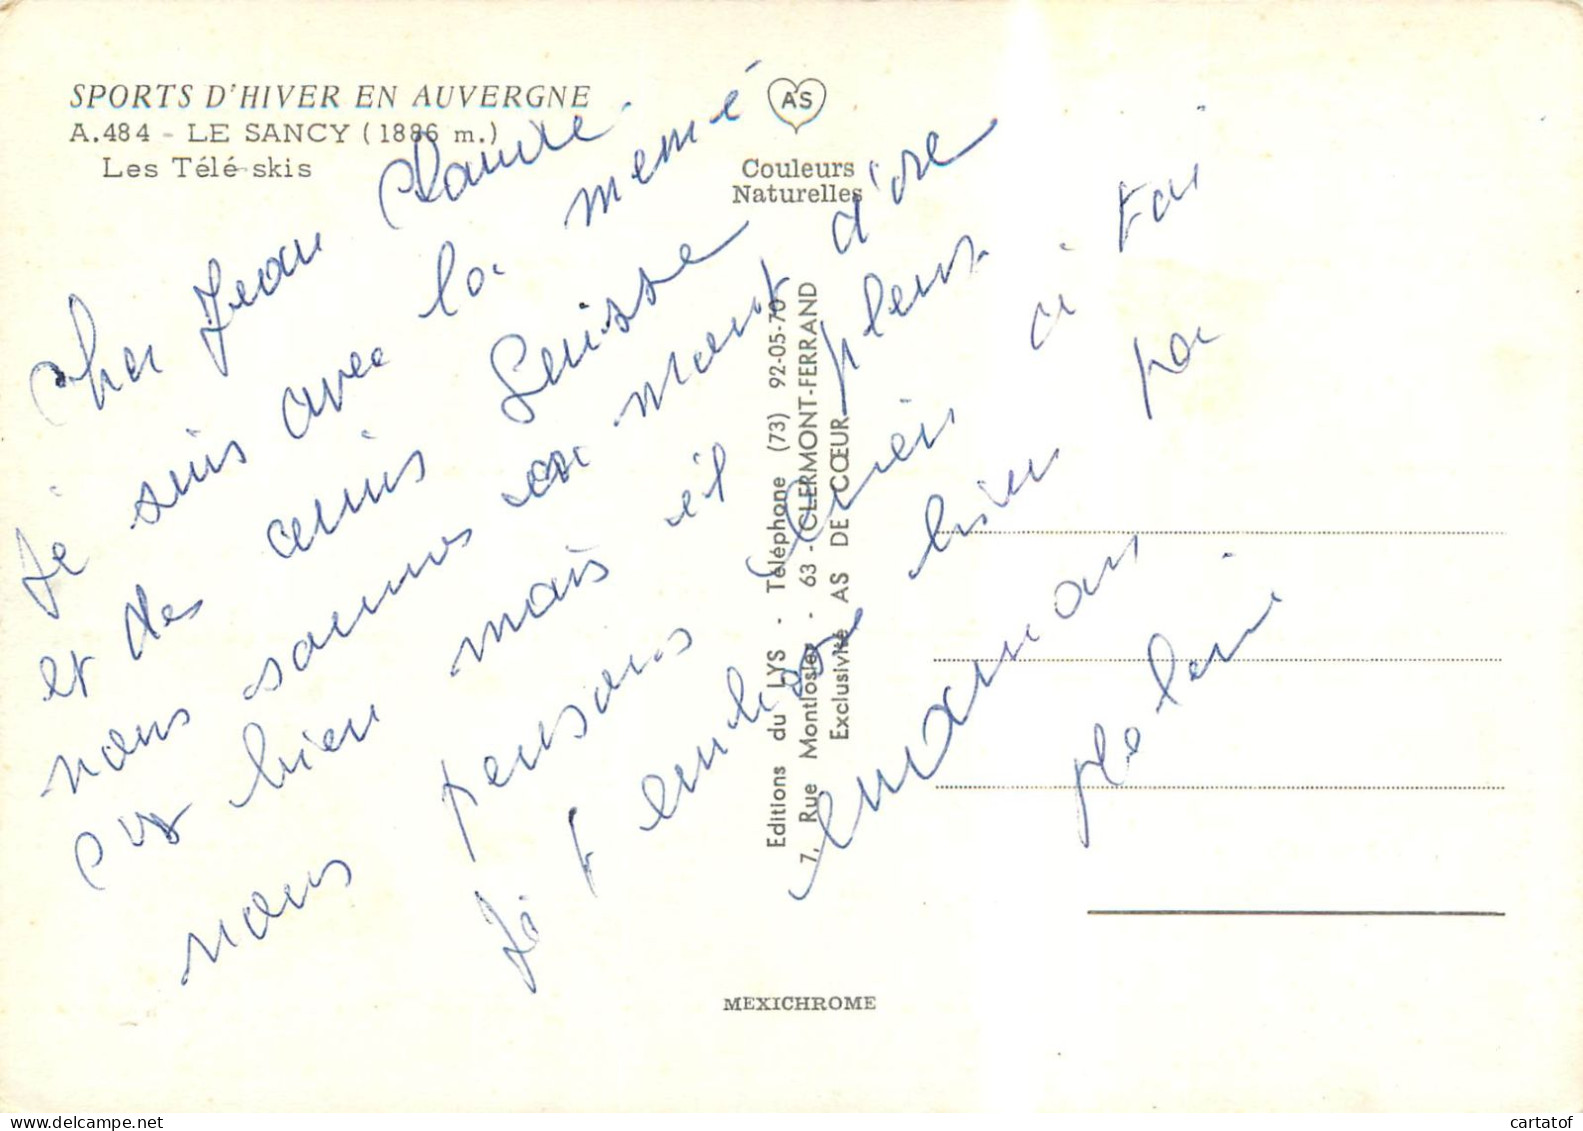 SPORTS D'HIVER EN AUVERGNE
A.484 - LE SANCY (1886 m.)
Les Télé-skis
AS
Couleurs
Naturelles
cher Jean Claude
Je suis avec la memé
et des amis Suisse
nous sommes au mont d'ore
mais il pleus
nous pensons bien a toi
Je t embrasse bien
maman
Editions du LYS - Téléphone (73) 92-05-70
7, Rue Montlosier - 63 - CLERMONT-FERRAND
Exclusivité AS DE CŒUR
MEXICHROME
delcampe.net
cartatof